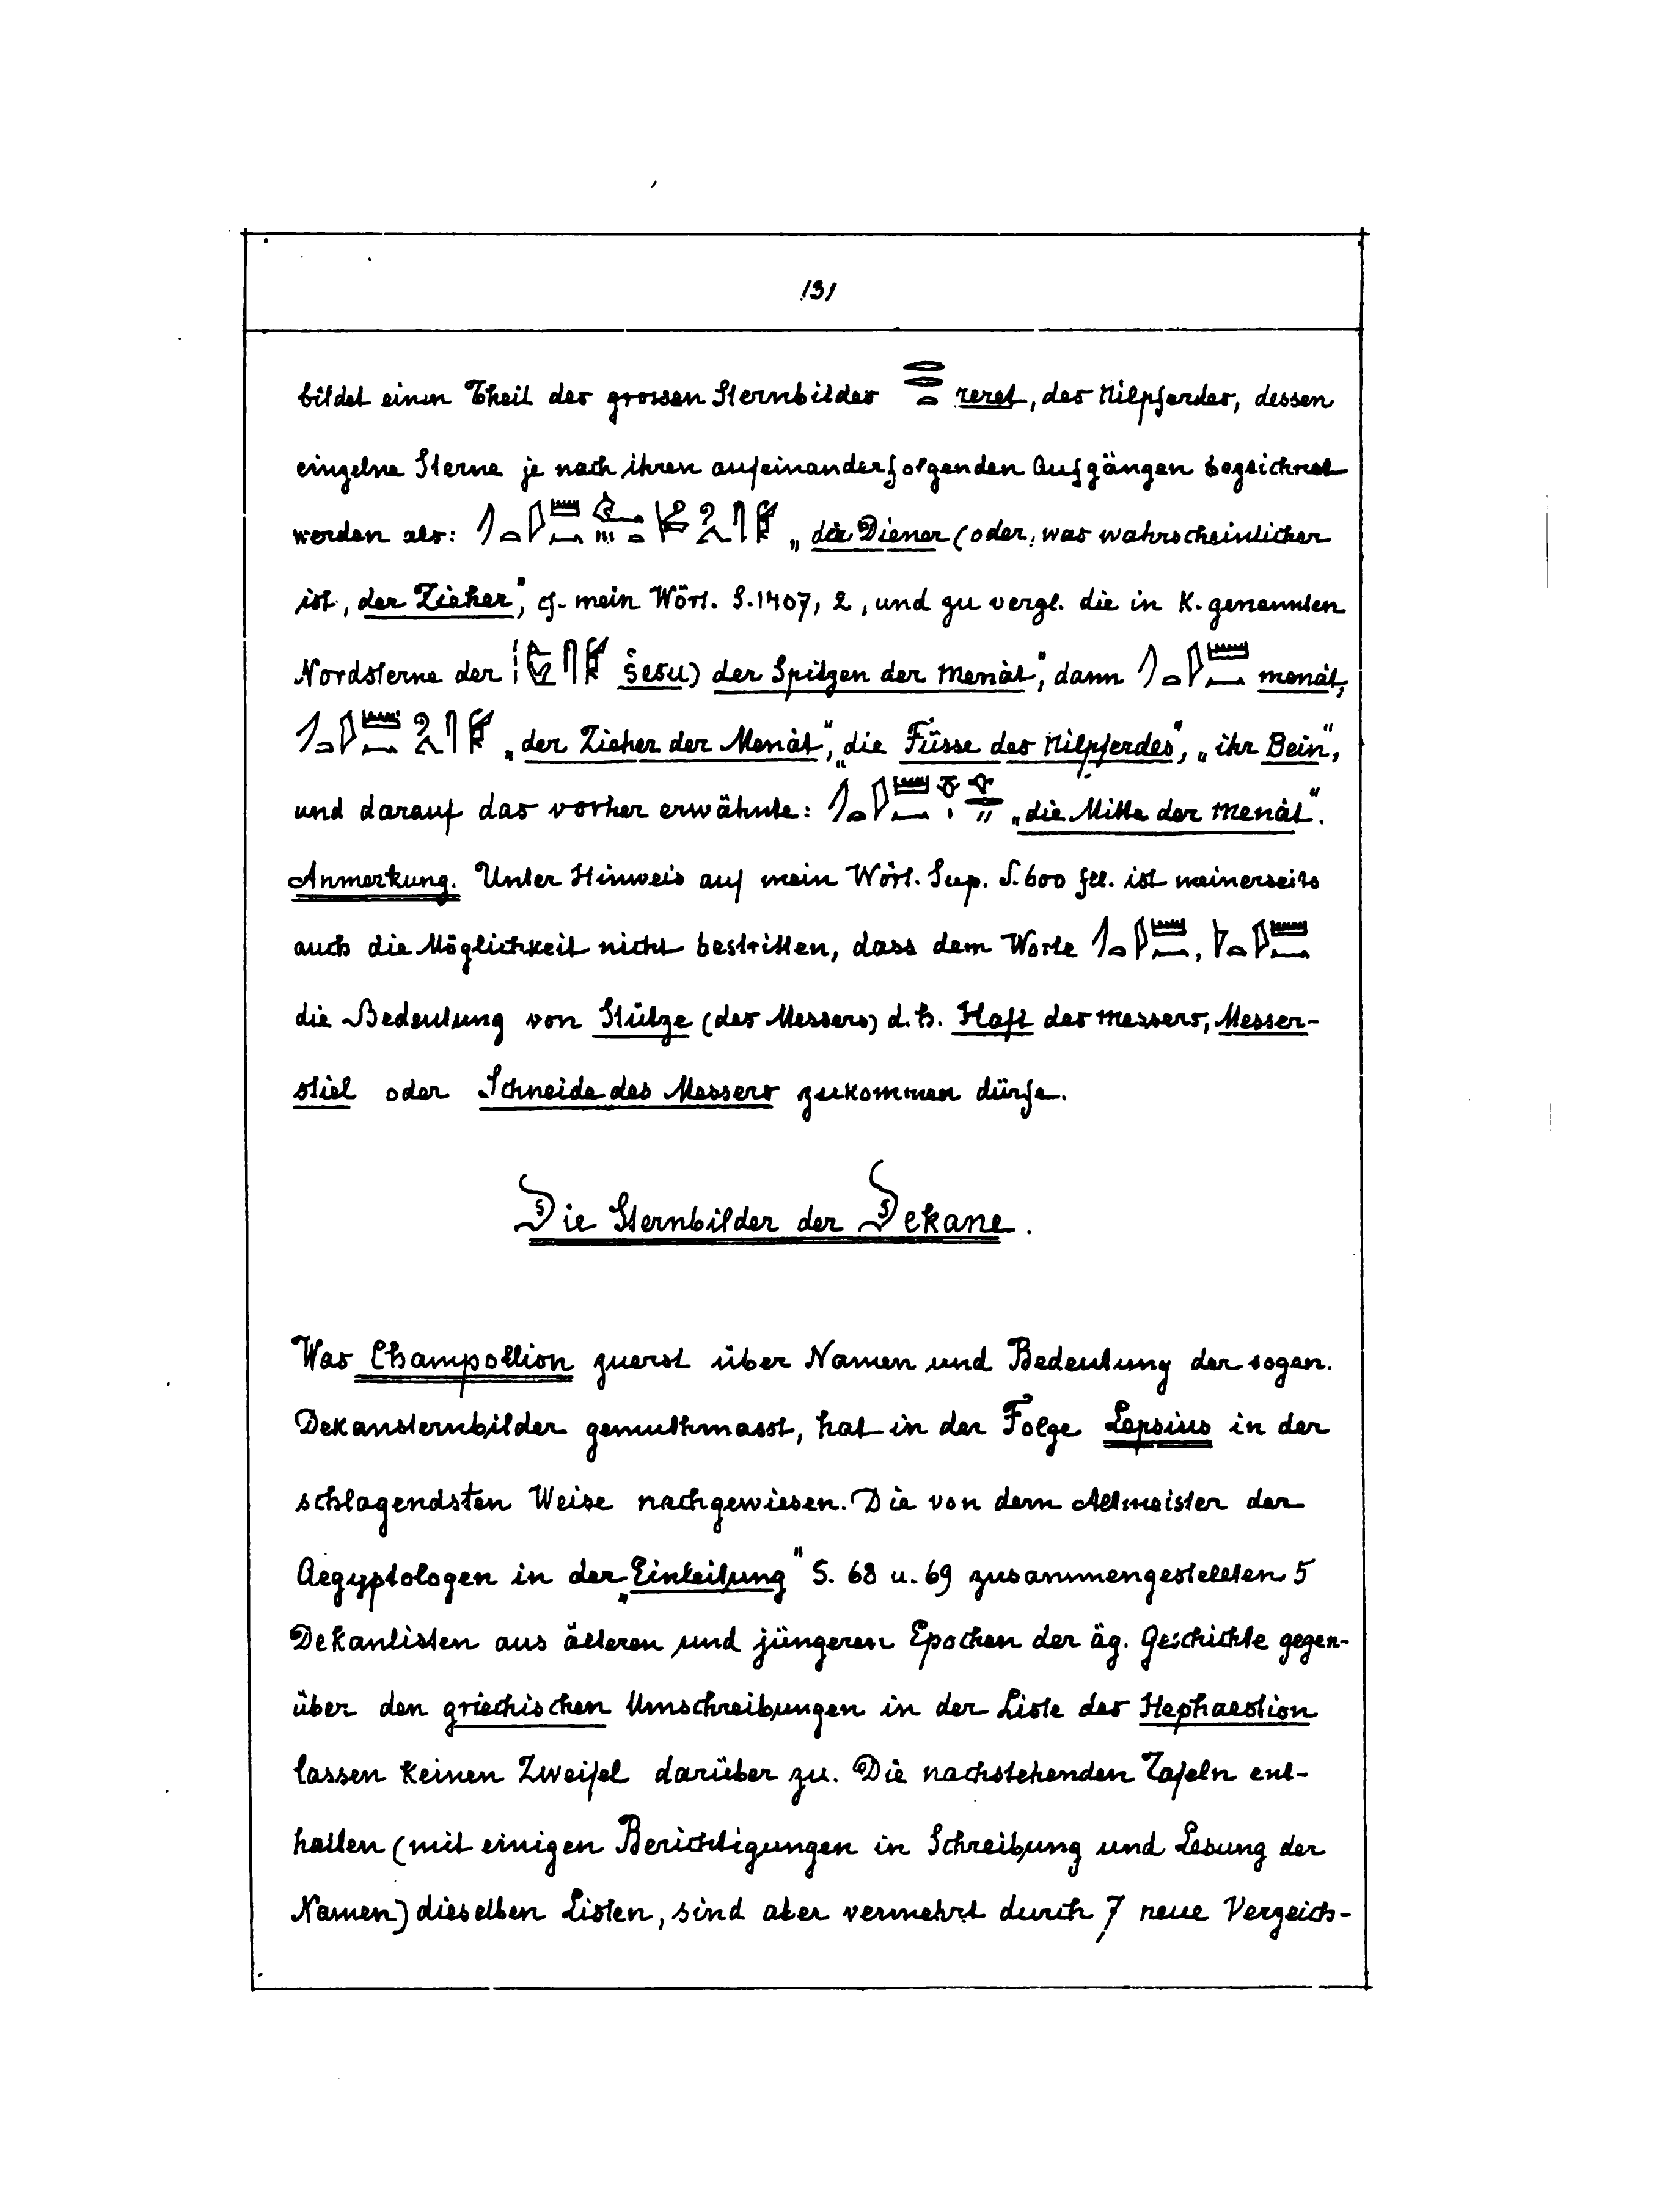 131
bildet einen Theil des grossen Sternbildes reret, des Nilpferdes, dessen
einzelne Sterne je nach ihren aufeinanderfolgenden Aufgängen bezeichnet
werden als: „die Diener (oder, was wahrscheinlicher
ist, der Zieher", cf. mein Wört. S. 1407, 2, und zu vergl. die in K. genannten
Nordsterne der šesu) der Spitzen der Menât", dann menât,
„der Zieher der Menât", „die Füsse des Nilpferdes", „ihr Bein",
und darauf das vorher erwähnte: „die Mitte der Menât".
Anmerkung. Unter Hinweis auf mein Wört. Sup. S. 600 fll. ist meinerseits
auch die Möglichkeit nicht bestritten, dass dem Worte ,
die Bedeutung von Stütze (des Messers) d. h. Haft des Messers, Messer-
stiel oder Schneide des Messers zukommen dürfe.
Die Sternbilder der Dekane.
Was Champollion zuerst über Namen und Bedeutung der sogen.
Dekansternbilder gemuthmasst, hat in der Folge Lepsius in der
schlagendsten Weise nachgewiesen. Die von dem Altmeister der
Aegyptologen in der „Einleitung" S. 68 u. 69 zusammengestellten 5
Dekanlisten aus älteren und jüngeren Epochen der äg. Geschichte gegen-
über den griechischen Umschreibungen in der Liste des Hephaestion
lassen keinen Zweifel darüber zu. Die nachstehenden Tafeln ent-
halten (mit einigen Berichtigungen in Schreibung und Lesung der
Namen) dieselben Listen, sind aber vermehrt durch 7 neue Verzeich-